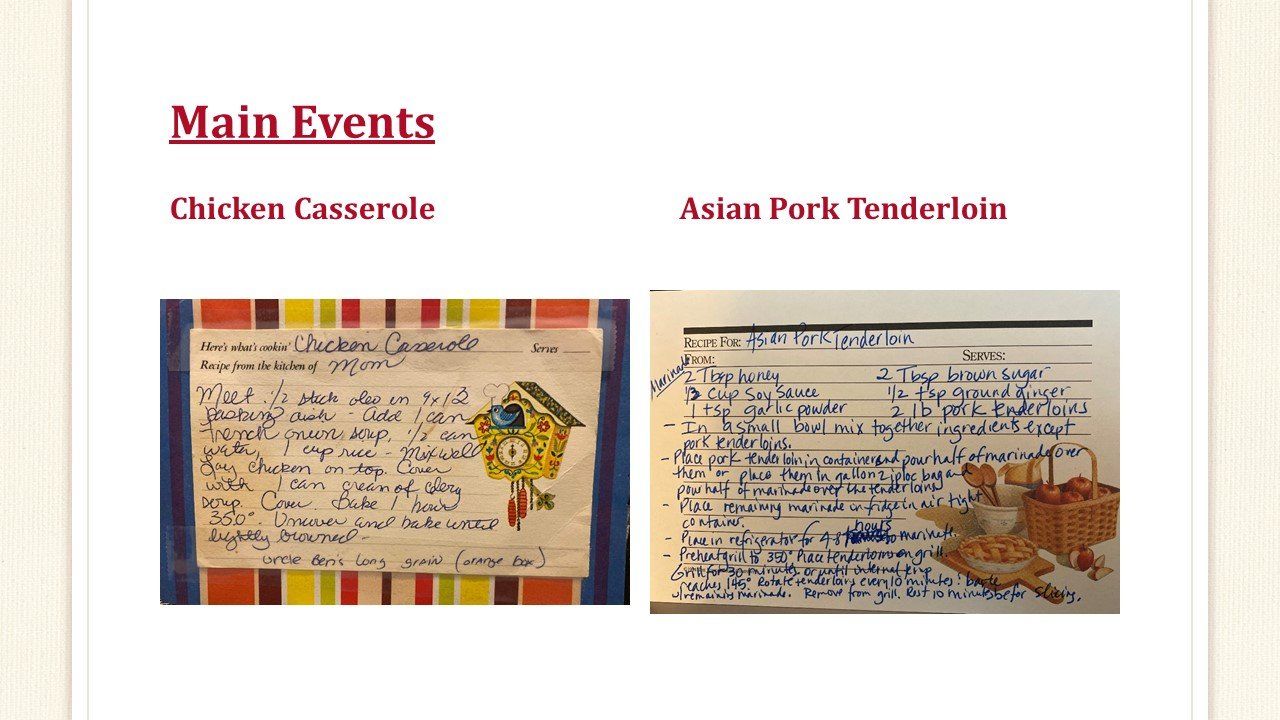 Main Events
Chicken Casserole
Here's what's cookin' Chicken Casserole Serves
Recipe from the kitchen of Mom
Melt 1/2 stick oleo in 9x13
baking dish - Add 1 can
French onion soup, 1/2 can
water, 1 cup rice - Mix well
Lay chicken on top. Cover
with 1 can cream of celery
soup. Cover. Bake 1 hour
350°. Uncover and bake until
lightly browned -
uncle Ben's long grain (orange box)
Asian Pork Tenderloin
RECIPE FOR: Asian Pork Tenderloin
FROM: SERVES:
Marinade
2 Tbsp honey 2 Tbsp brown sugar
1/2 cup soy sauce 1/2 tsp ground ginger
1 tsp garlic powder 2 lb pork tenderloins
- In a small bowl mix together ingredients except
pork tenderloins.
- Place pork tenderloin in container and pour half of marinade over
them or place them in gallon ziploc bag and
pour half of marinade over the tenderloins
- Place remaining marinade in fridge in air tight
container.
- Place in refrigerator for 4-8 hours to marinate.
- Preheat grill to 350° Place tenderloin on grill
Grill for 30 minutes or until internal temp
reaches 145° Rotate tenderloins every 10 minutes! baste
w/remaining marinade. Remove from grill. Rest 10 minutes befor slicing.